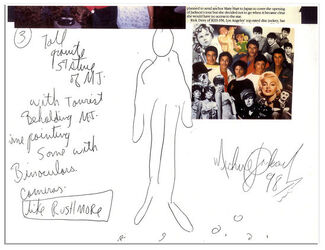 planned to send anchor Mary Hart to Japan to cover the opening
of Jackson's tour but she decided not to go when it became clear
she would have no access to the star.
Rick Dees of KIIS-FM, Los Angeles' top-rated disc jockey, has
③ Tall
granite
Statue
of MJ.
with Tourist
Beholding MJ.
pointing
Some with
Binoculars
Cameras.
like RUSHMORE
Michael Jackson
98